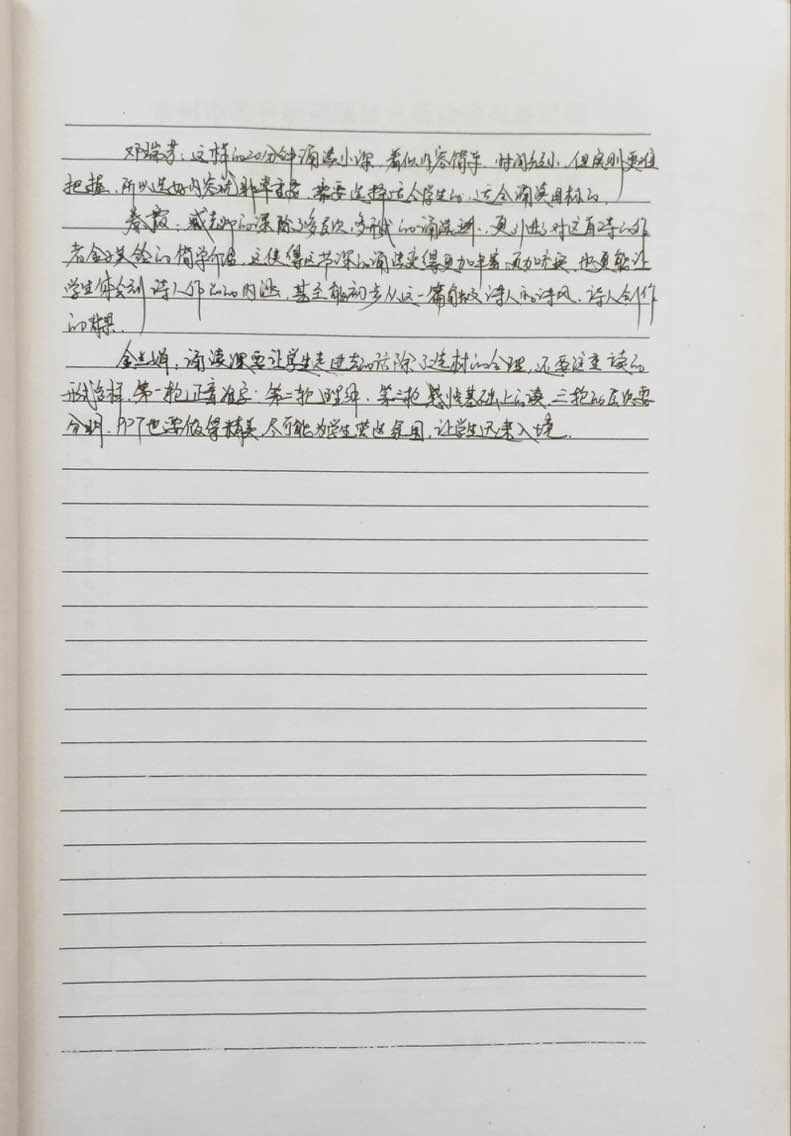 邓瑞芳：这样的20分钟诵读小课，看似内容简单，时间短小，但实则更难
把握，所以选好内容就非常重要，需要选择适合学生的，适合诵读目标的。
秦霞：戚老师的课除了多层次，多形式的诵读外，更引进了对这首诗的作
者金子美铃的简单介绍，这使得这节课的诵读变得更加丰富，更加充实，也更能让
学生体会到诗人作品的内涵，甚至能初步从这一篇触及诗人的诗风，诗人创作
的背景。
诵读课要让学生走进去的话除了选材的合理，还要注重读的
形式多样，第一轮正音准字，第二轮理解，第三轮感性基础上的读，三轮的层次要
分明，PPT也要做得精美，尽可能为学生营造氛围，让学生迅速入境。